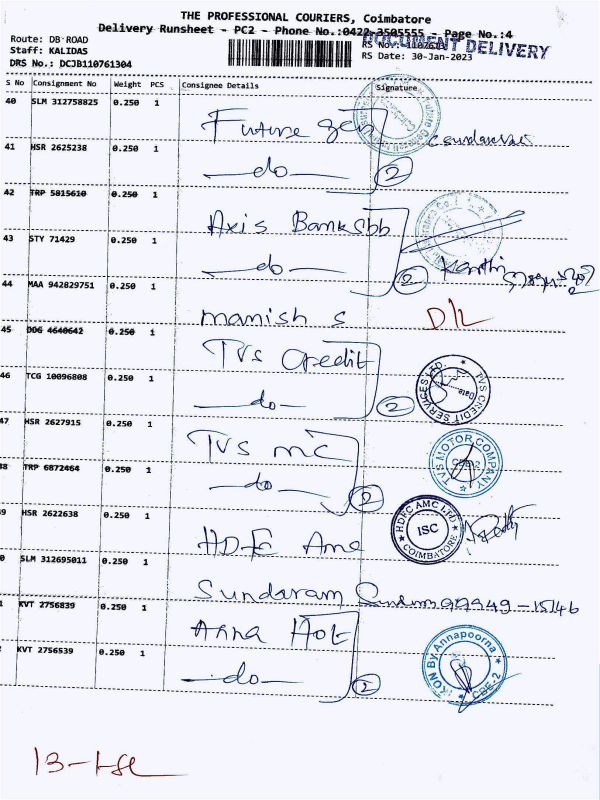 THE PROFESSIONAL COURIERS, Coimbatore
Delivery Runsheet - PC2 - Phone No.:0422-3505555 - Page No.:4
DOCUMENT DELIVERY
Route: DB ROAD
RS No.: 1107613
Staff: KALIDAS
RS Date: 30-Jan-2023
DRS No.: DCJB110761304
S No Consignment No Weight PCS Consignee Details Signature
40 SLM 312758825 0.250 1 Future gen
41 HSR 2625238 0.250 1 do 2
42 TRP 5815610 0.250 1 Axis Bank cbb
43 STY 71429 0.250 1 do 2
44 MAA 942829751 0.250 1 manish s D/L
45 DOG 4640642 0.250 1 TVS Credit
TVS CREDIT SERVICES LTD.
Date
46 TCG 10096808 0.250 1 do 2
47 HSR 2627915 0.250 1 TVS mc
TVS MOTOR COMPANY
CBE-2
8 TRP 6872464 0.250 1 do 2
9 HSR 2622638 0.250 1 HDFC Amc
HDFC AMC LTD
ISC
COIMBATORE
0 SLM 312695011 0.250 1 Sundaram
1 KVT 2756839 0.250 1 Anna Hot
KVT 2756539 0.250 1 do 2
KON By Annapoorna
CBE-2